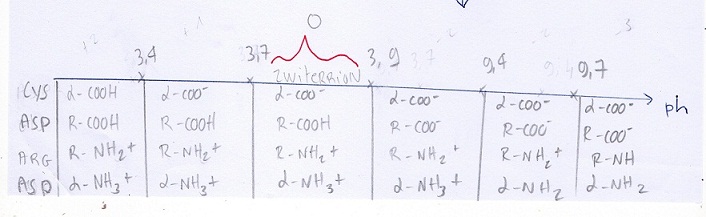 0
3,4 3,7 3,9 9,4 9,7
zwitterrion
CYS α-COOH α-COO⁻ α-COO⁻ α-COO⁻ α-COO⁻ α-COO⁻ ph
ASP R-COOH R-COOH R-COOH R-COO⁻ R-COO⁻ R-COO⁻
ARG R-NH₂+ R-NH₂+ R-NH₂+ R-NH₂+ R-NH₂+ R-NH
ASP α-NH₃+ α-NH₃+ α-NH₃+ α-NH₃+ α-NH₂ α-NH₂